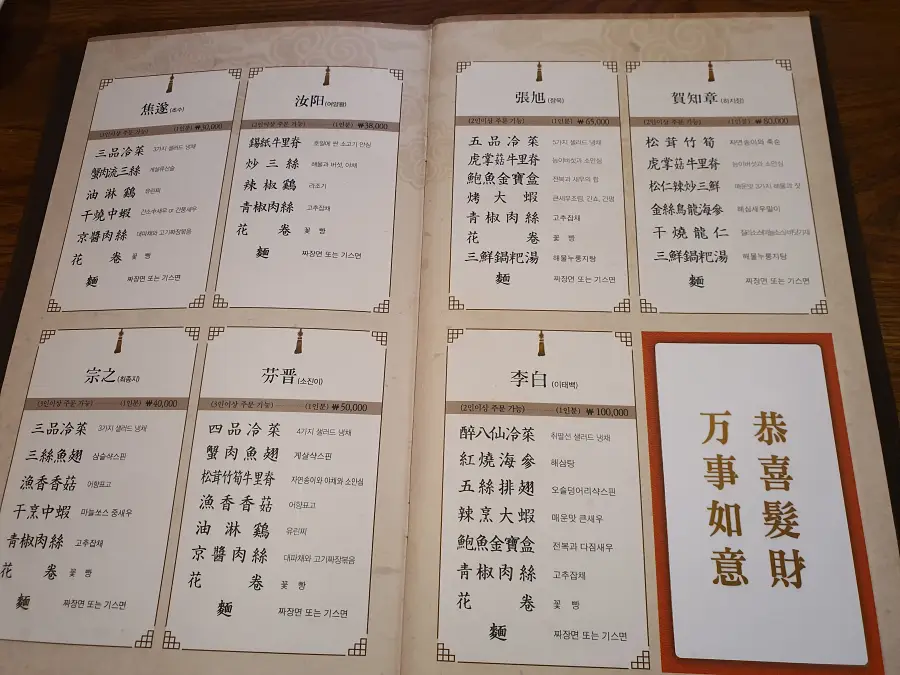 焦遂 (초수)
(3인이상 주문 가능) (1인분) ₩30,000
三品冷菜 3가지 샐러드 냉채
蟹肉流三絲 게살류산슬
油淋鷄 유린찌
干燒中蝦 간소中새우 or 간풍새우
京醬肉絲 대파채와 고기짜장볶음
花卷 꽃빵
麵 짜장면 또는 기스면
汝阳 (여양왕)
(2인이상 주문 가능) (1인분) ₩38,000
錫紙牛里脊 호일에 싼 소고기 안심
炒三絲 해물과 버섯, 야채
辣椒鷄 라조기
青椒肉絲 고추잡채
花卷 꽃빵
麵 짜장면 또는 기스면
張旭 (장욱)
(2인이상 주문 가능) (1인분) ₩65,000
五品冷菜 5가지 샐러드 냉채
虎掌菇牛里脊 능이버섯과 소안심
鮑魚金寶盒 전복과 새우의 합
烤大蝦 큰새우조림, 간쇼, 간펑
青椒肉絲 고추잡채
花卷 꽃빵
三鮮鍋粑湯 해물누룽지탕
麵 짜장면 또는 기스면
賀知章 (하지장)
(2인이상 주문 가능) (1인분) ₩80,000
松茸竹筍 자연송이와 죽순
虎掌菇牛里脊 능이버섯과 소안심
松仁辣炒三鮮 매운맛 3가지 해물과 잣
金絲烏龍海參 해삼새우말이
干燒龍仁
三鮮鍋粑湯 해물누룽지탕
麵 짜장면 또는 기스면
宗之 (최종지)
(3인이상 주문 가능) (1인분) ₩40,000
三品冷菜 3가지 샐러드 냉채
三絲魚翅 삼슬샥스핀
漁香香菇 어향표고
干烹中蝦 마늘쏘스 중새우
青椒肉絲 고추잡채
花卷 꽃빵
麵 짜장면 또는 기스면
芬晋 (소진이)
(3인이상 주문 가능) (1인분) ₩50,000
四品冷菜 4가지 샐러드 냉채
蟹肉魚翅 게살샥스핀
松茸竹筍牛里脊 자연송이와 야채와 소안심
漁香香菇 어향표고
油淋鷄 유린찌
京醬肉絲 대파채와 고기짜장볶음
花卷 꽃빵
麵 짜장면 또는 기스면
李白 (이태백)
(2인이상 주문 가능) (1인분) ₩100,000
醉八仙冷菜 취팔선 샐러드 냉채
紅燒海參 해삼탕
五絲排翅 오슬덩어리샥스핀
辣烹大蝦 매운맛 큰새우
鮑魚金寶盒 전복과 다짐새우
青椒肉絲 고추잡채
花卷 꽃빵
麵 짜장면 또는 기스면
恭喜髮財
万事如意